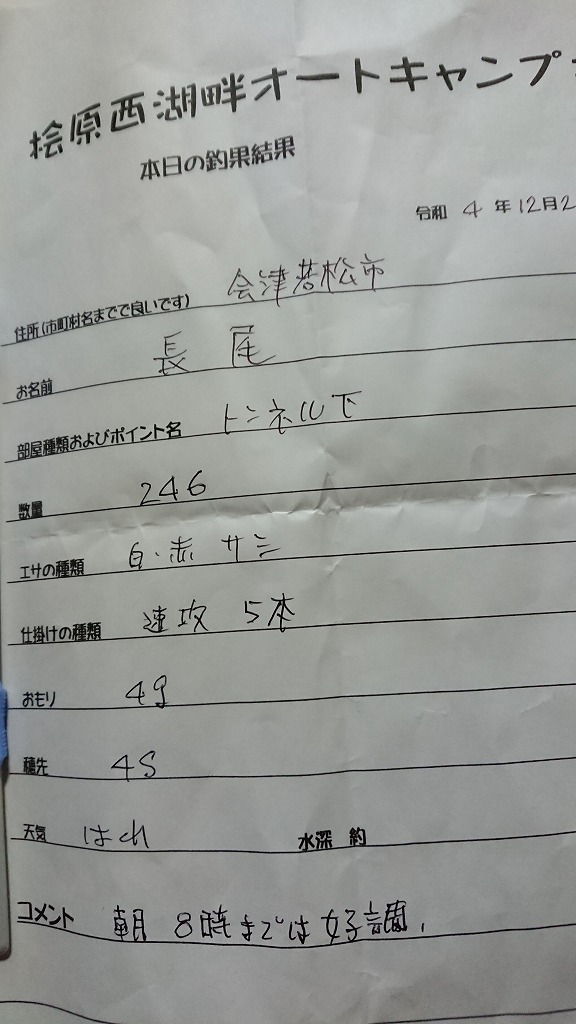 桧原西湖畔オートキャンプ
本日の釣果結果
令和 4 年 12月2
住所(市町村名までで良いです) 会津若松市
お名前 長尾
部屋種類およびポイント名 トンネル下
数量 246
エサの種類 白・赤 サシ
仕掛けの種類 速攻 5本
おもり 4g
穂先 4S
天気 はれ 水深 約
コメント 朝 8時までは好調、